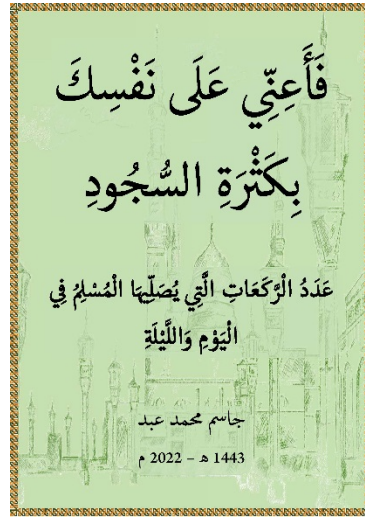 فَأَعِنِّي عَلَى نَفْسِكَ
بِكَثْرَةِ السُّجُودِ
عَدَدُ الْرَّكَعَاتِ الَّتِي يُصَلِّيهَا الْمُسْلِمُ فِي
الْيَوْمِ وَاللَّيْلَةِ
جاسم محمد عبد
1443 هـ – 2022 م